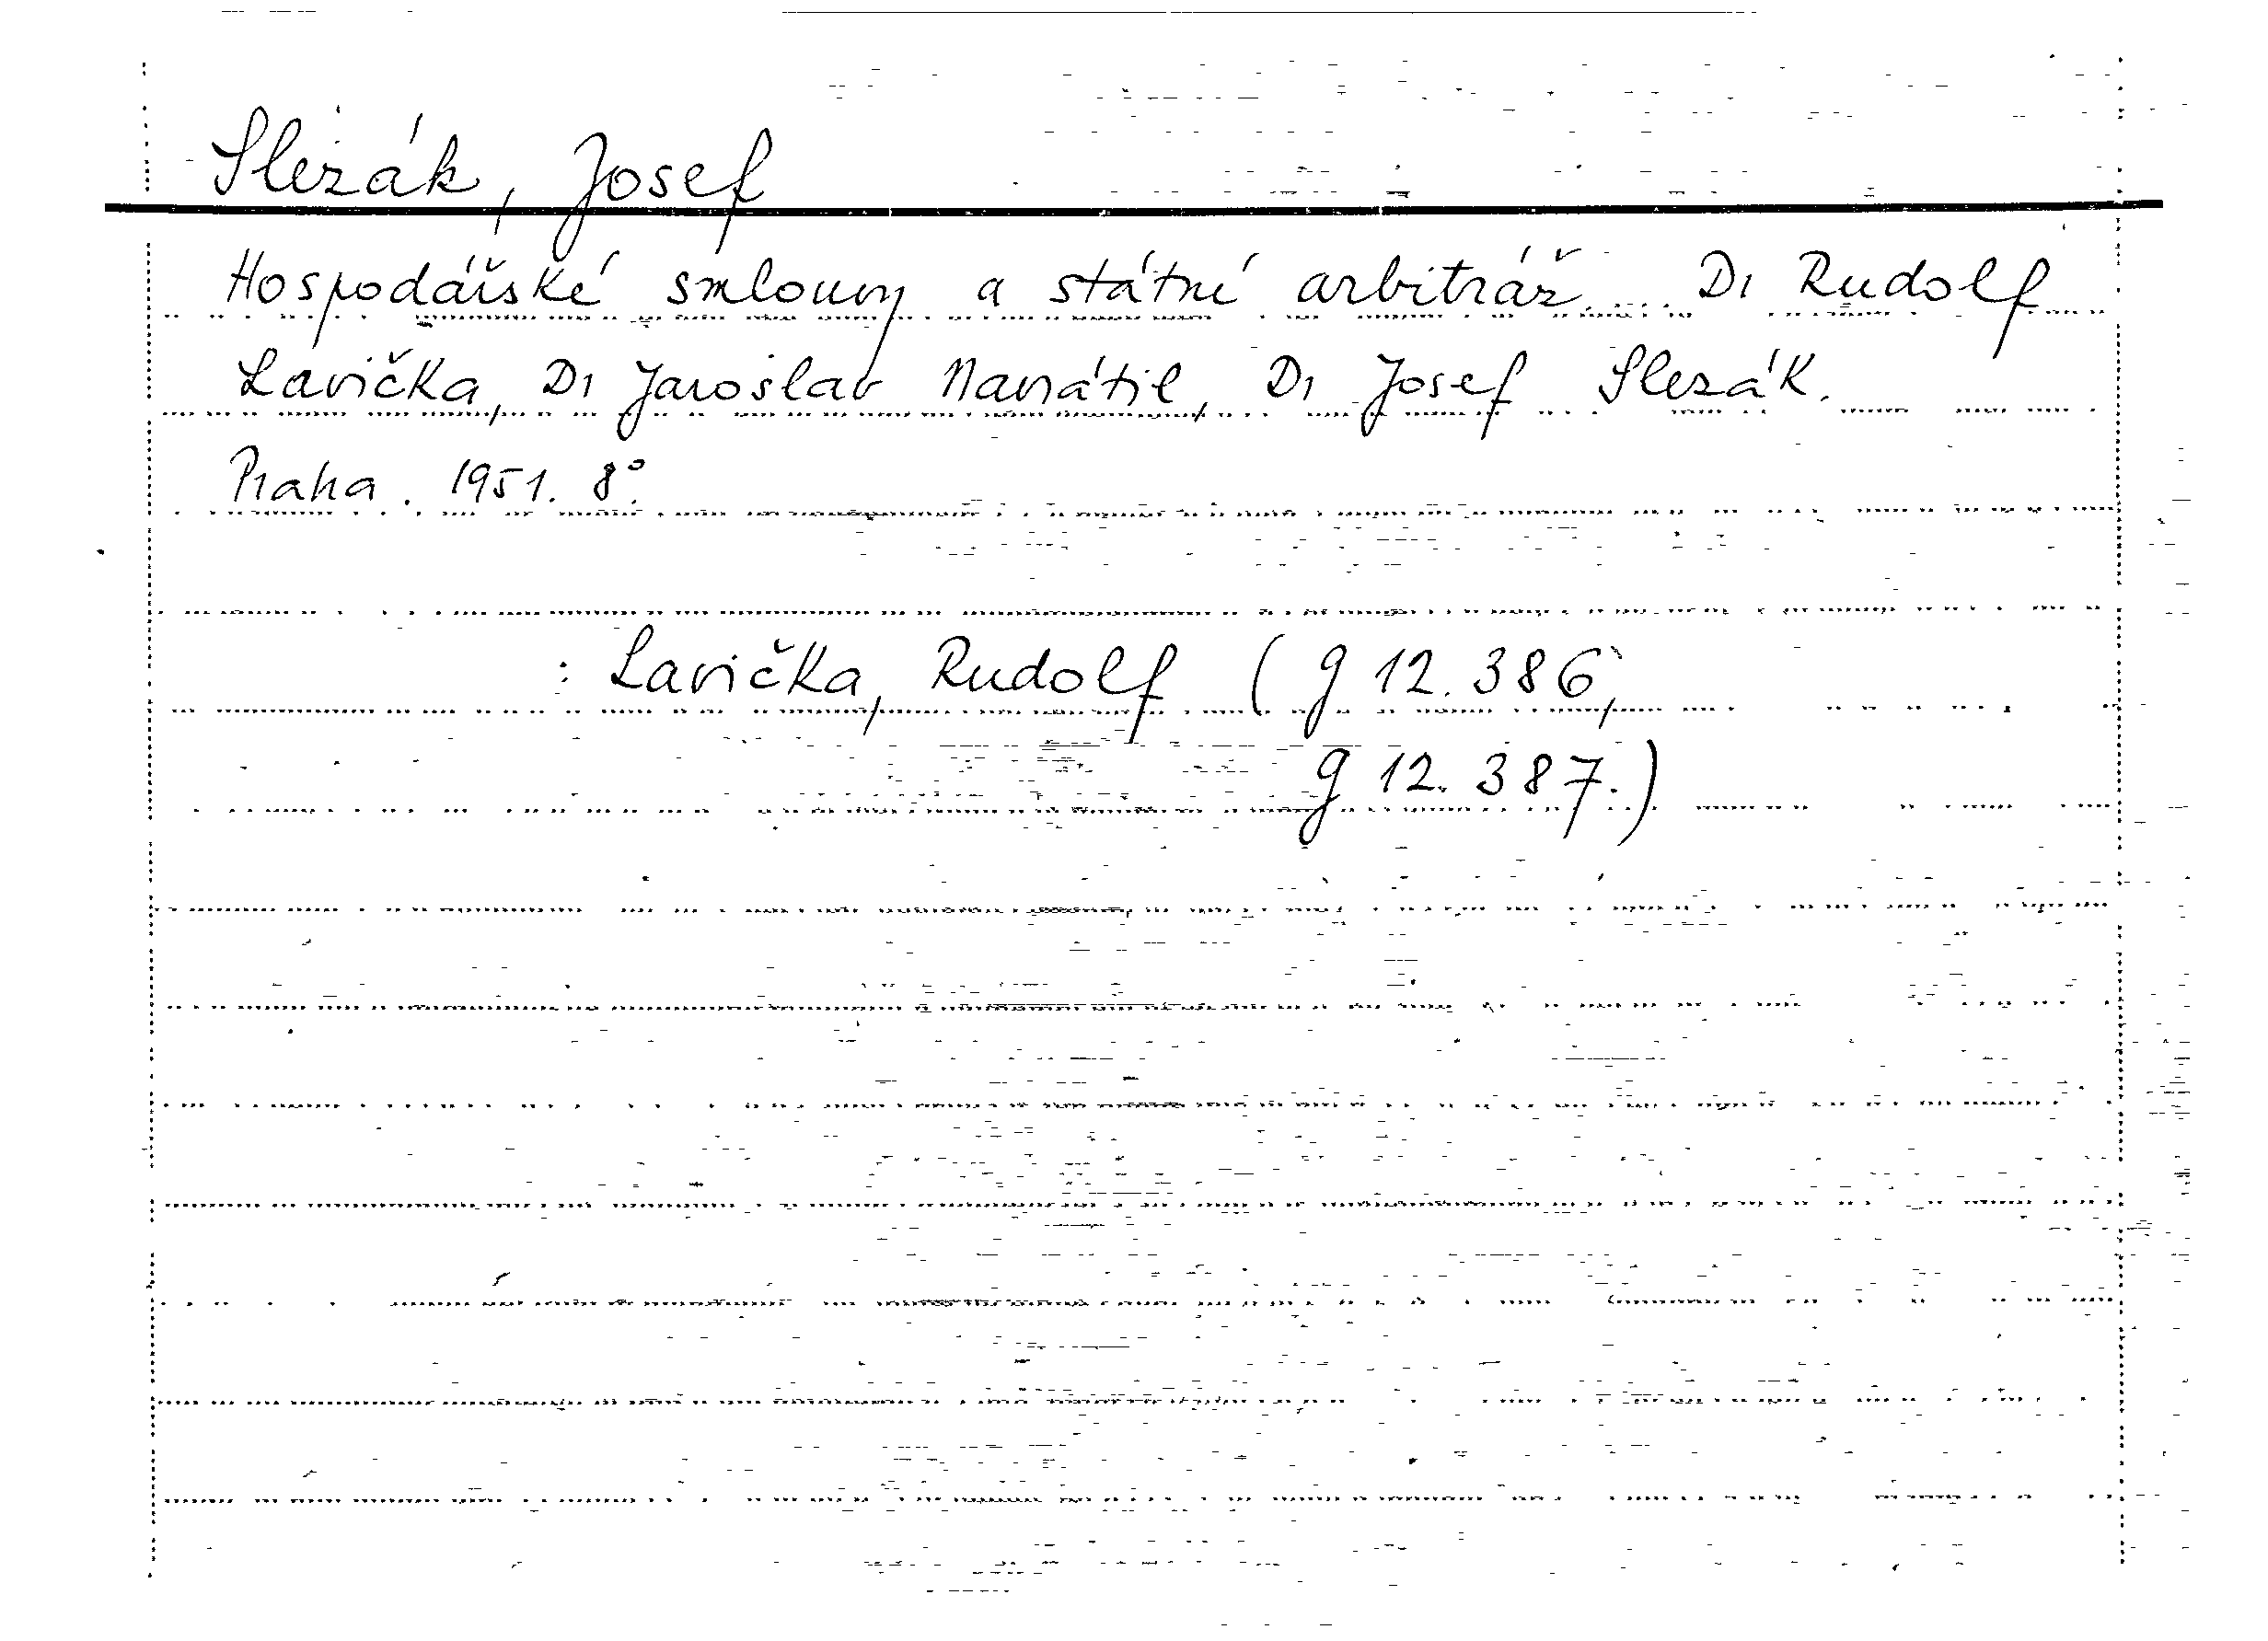 Slezák, Josef
Hospodářské smlouvy a státní arbitráž. ... Dr Rudolf
Lavička, Dr Jaroslav Navrátil, Dr Josef Slezák.
Praha. 1951. 8°.
: Lavička, Rudolf (g 12.386,
g 12.387.)